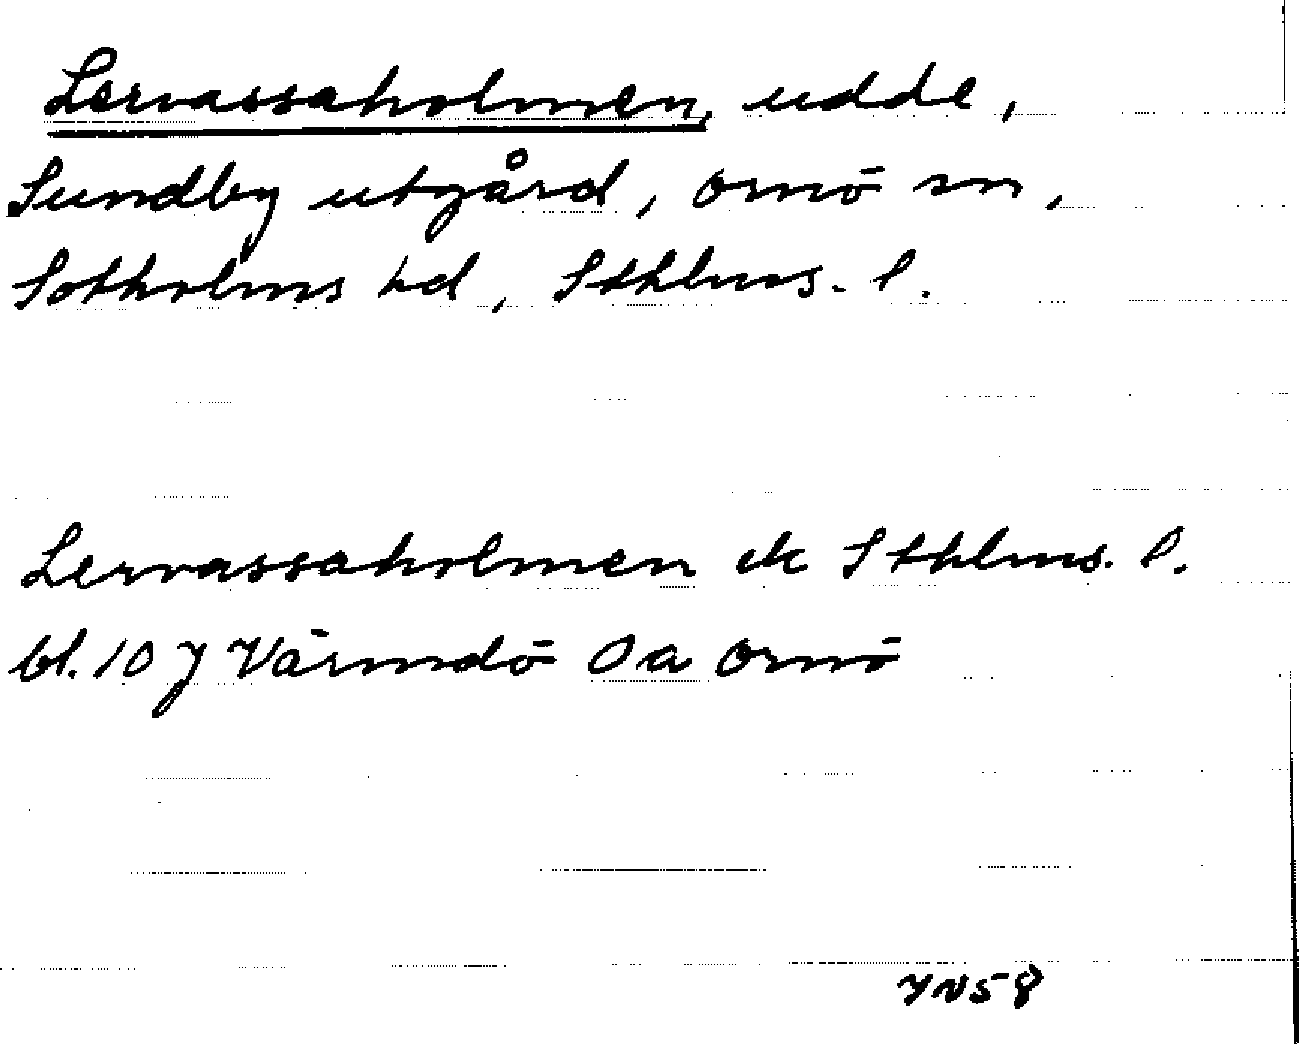 Lervassaholmen, udde,
Sundby utgård, Ornö sn,
Sotholms hd, Sthlms. l.
Lervassaholmen ek Sthlms. l.
bl. 10 J Värmdö Oa Ornö